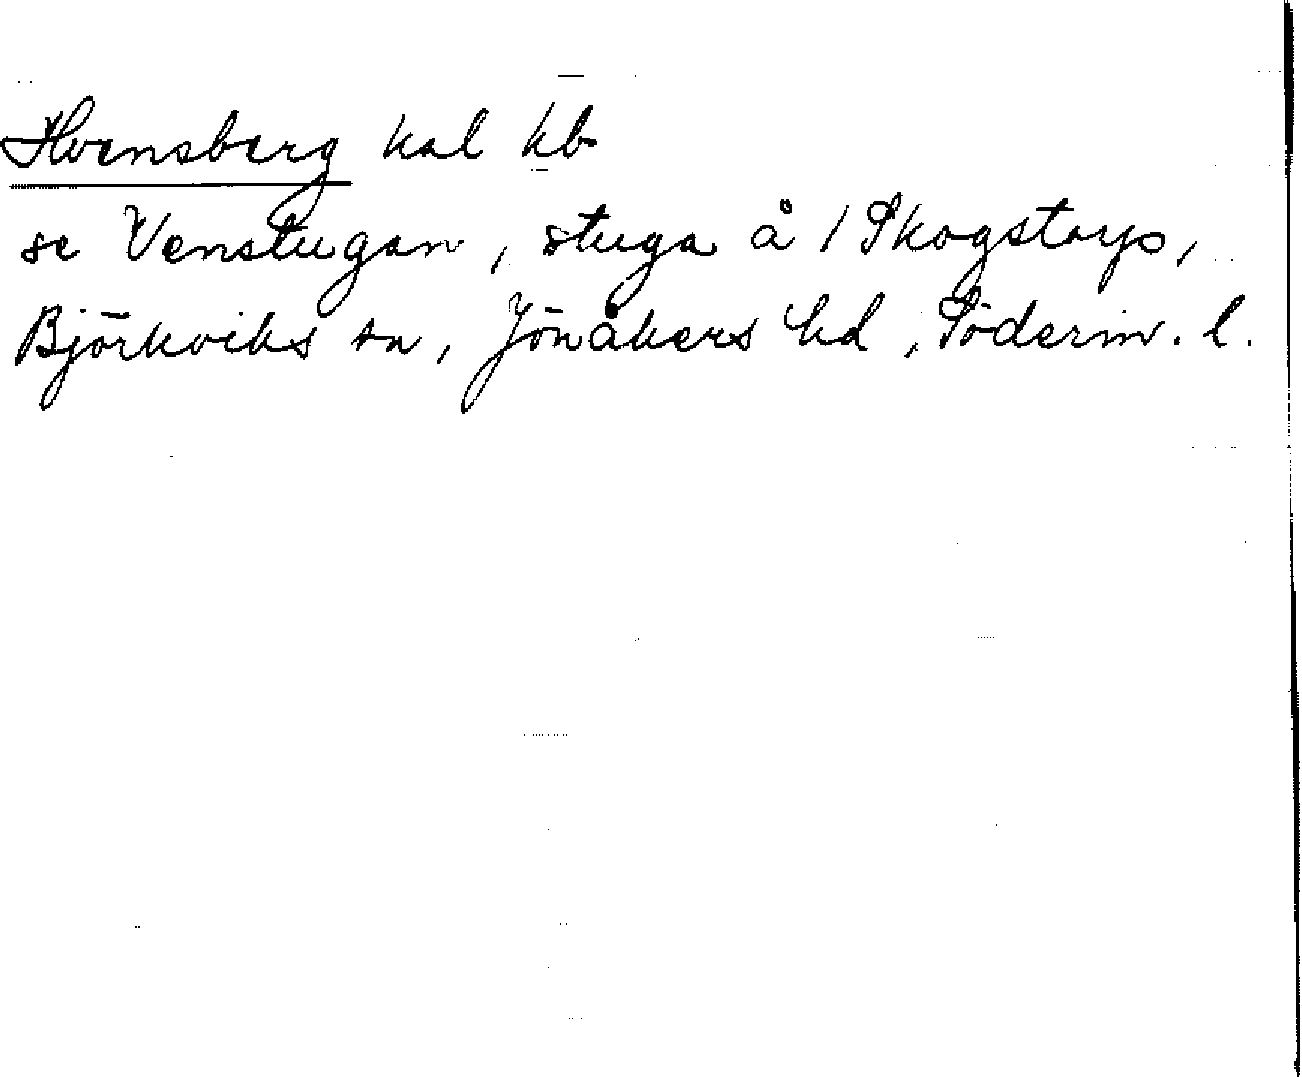 Hvensberg kal kb
se Venstugan, stuga å / Skogstorp,
Björkviks sn, Jönåkers hd, Söderm. l.